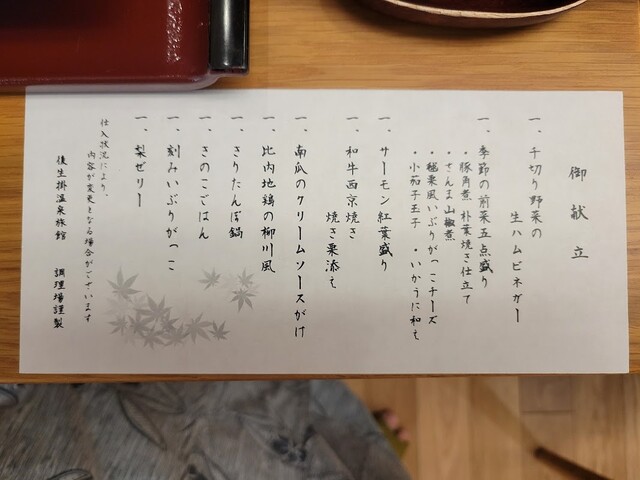 御献立
一、千切り野菜の
生ハムビネガー
一、季節の前菜五点盛り
・豚角煮 朴葉焼き仕立て
・さんま山椒煮
・毬栗風いぶりがっこチーズ
・小茄子玉子 ・いかうに和え
一、サーモン紅葉盛り
一、和牛西京焼き
焼き栗添え
一、南瓜のクリームソースがけ
一、比内地鶏の柳川風
一、きりたんぽ鍋
一、きのこごはん
一、刻みいぶりがっこ
一、梨ゼリー
仕入状況により、
内容が変更となる場合がございます
後生掛温泉旅館 調理場謹製